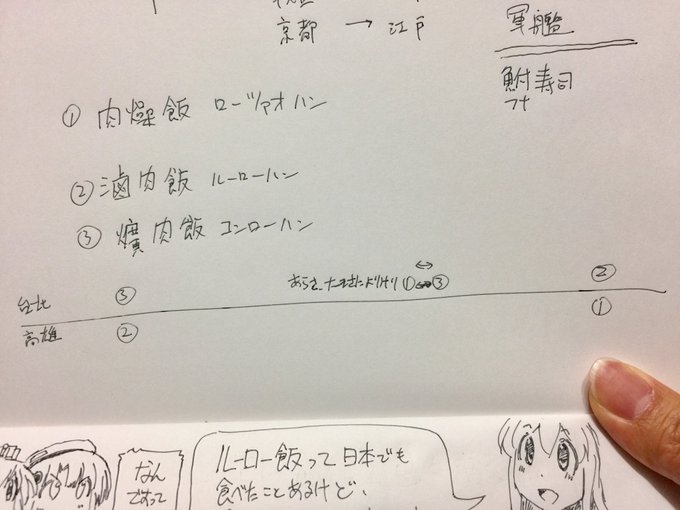 京都 → 江戸
軍艦
鮒寿司
フナ
① 肉燥飯 ローヅァオハン
② 滷肉飯 ルーローハン
③ 爌肉飯 コンローハン
①↔③
台北 ③ ②
高雄 ② ①
なん
ですって
ルーロー飯って日本でも
食べたことあるけど、